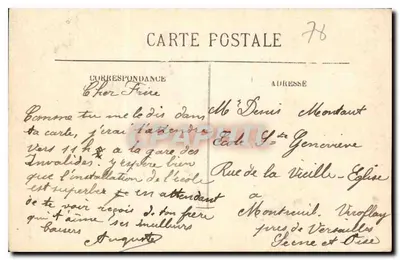 78
CARTE POSTALE
CORRESPONDANCE
ADRESSE
Cher Frère
Comme tu me le dis dans
ta carte, j'irai t'attendre
vers 11h à la gare des
Invalides. J'espère bien
que l'installation de l'école
est superbe en attendant
de te voir reçois de ton frère
qui t'aime ses meilleurs
baisers
Auguste
Mr Denis Montaut
Ecole Ste Geneviève
Rue de la Vieille-Eglise
a
Montreuil. Viroflay
près de Versailles
Seine et Oise